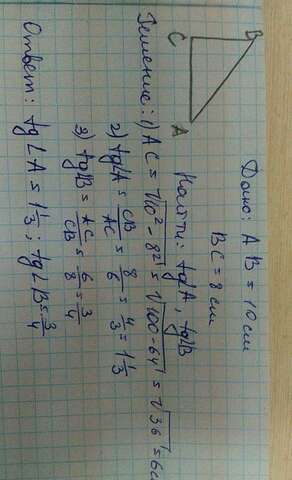 C
B
A
Дано: AB = 10 см
BC = 8 см
Найти: tgA, tgB
Решение: 1) AC = √10² - 8² = √100 - 64 = √36 = 6см
2) tg∠A = CB/AC = 8/6 = 4/3 = 1 1/3
3) tg∠B = AC/CB = 6/8 = 3/4
Ответ: tg∠A = 1 1/3; tg∠B = 3/4